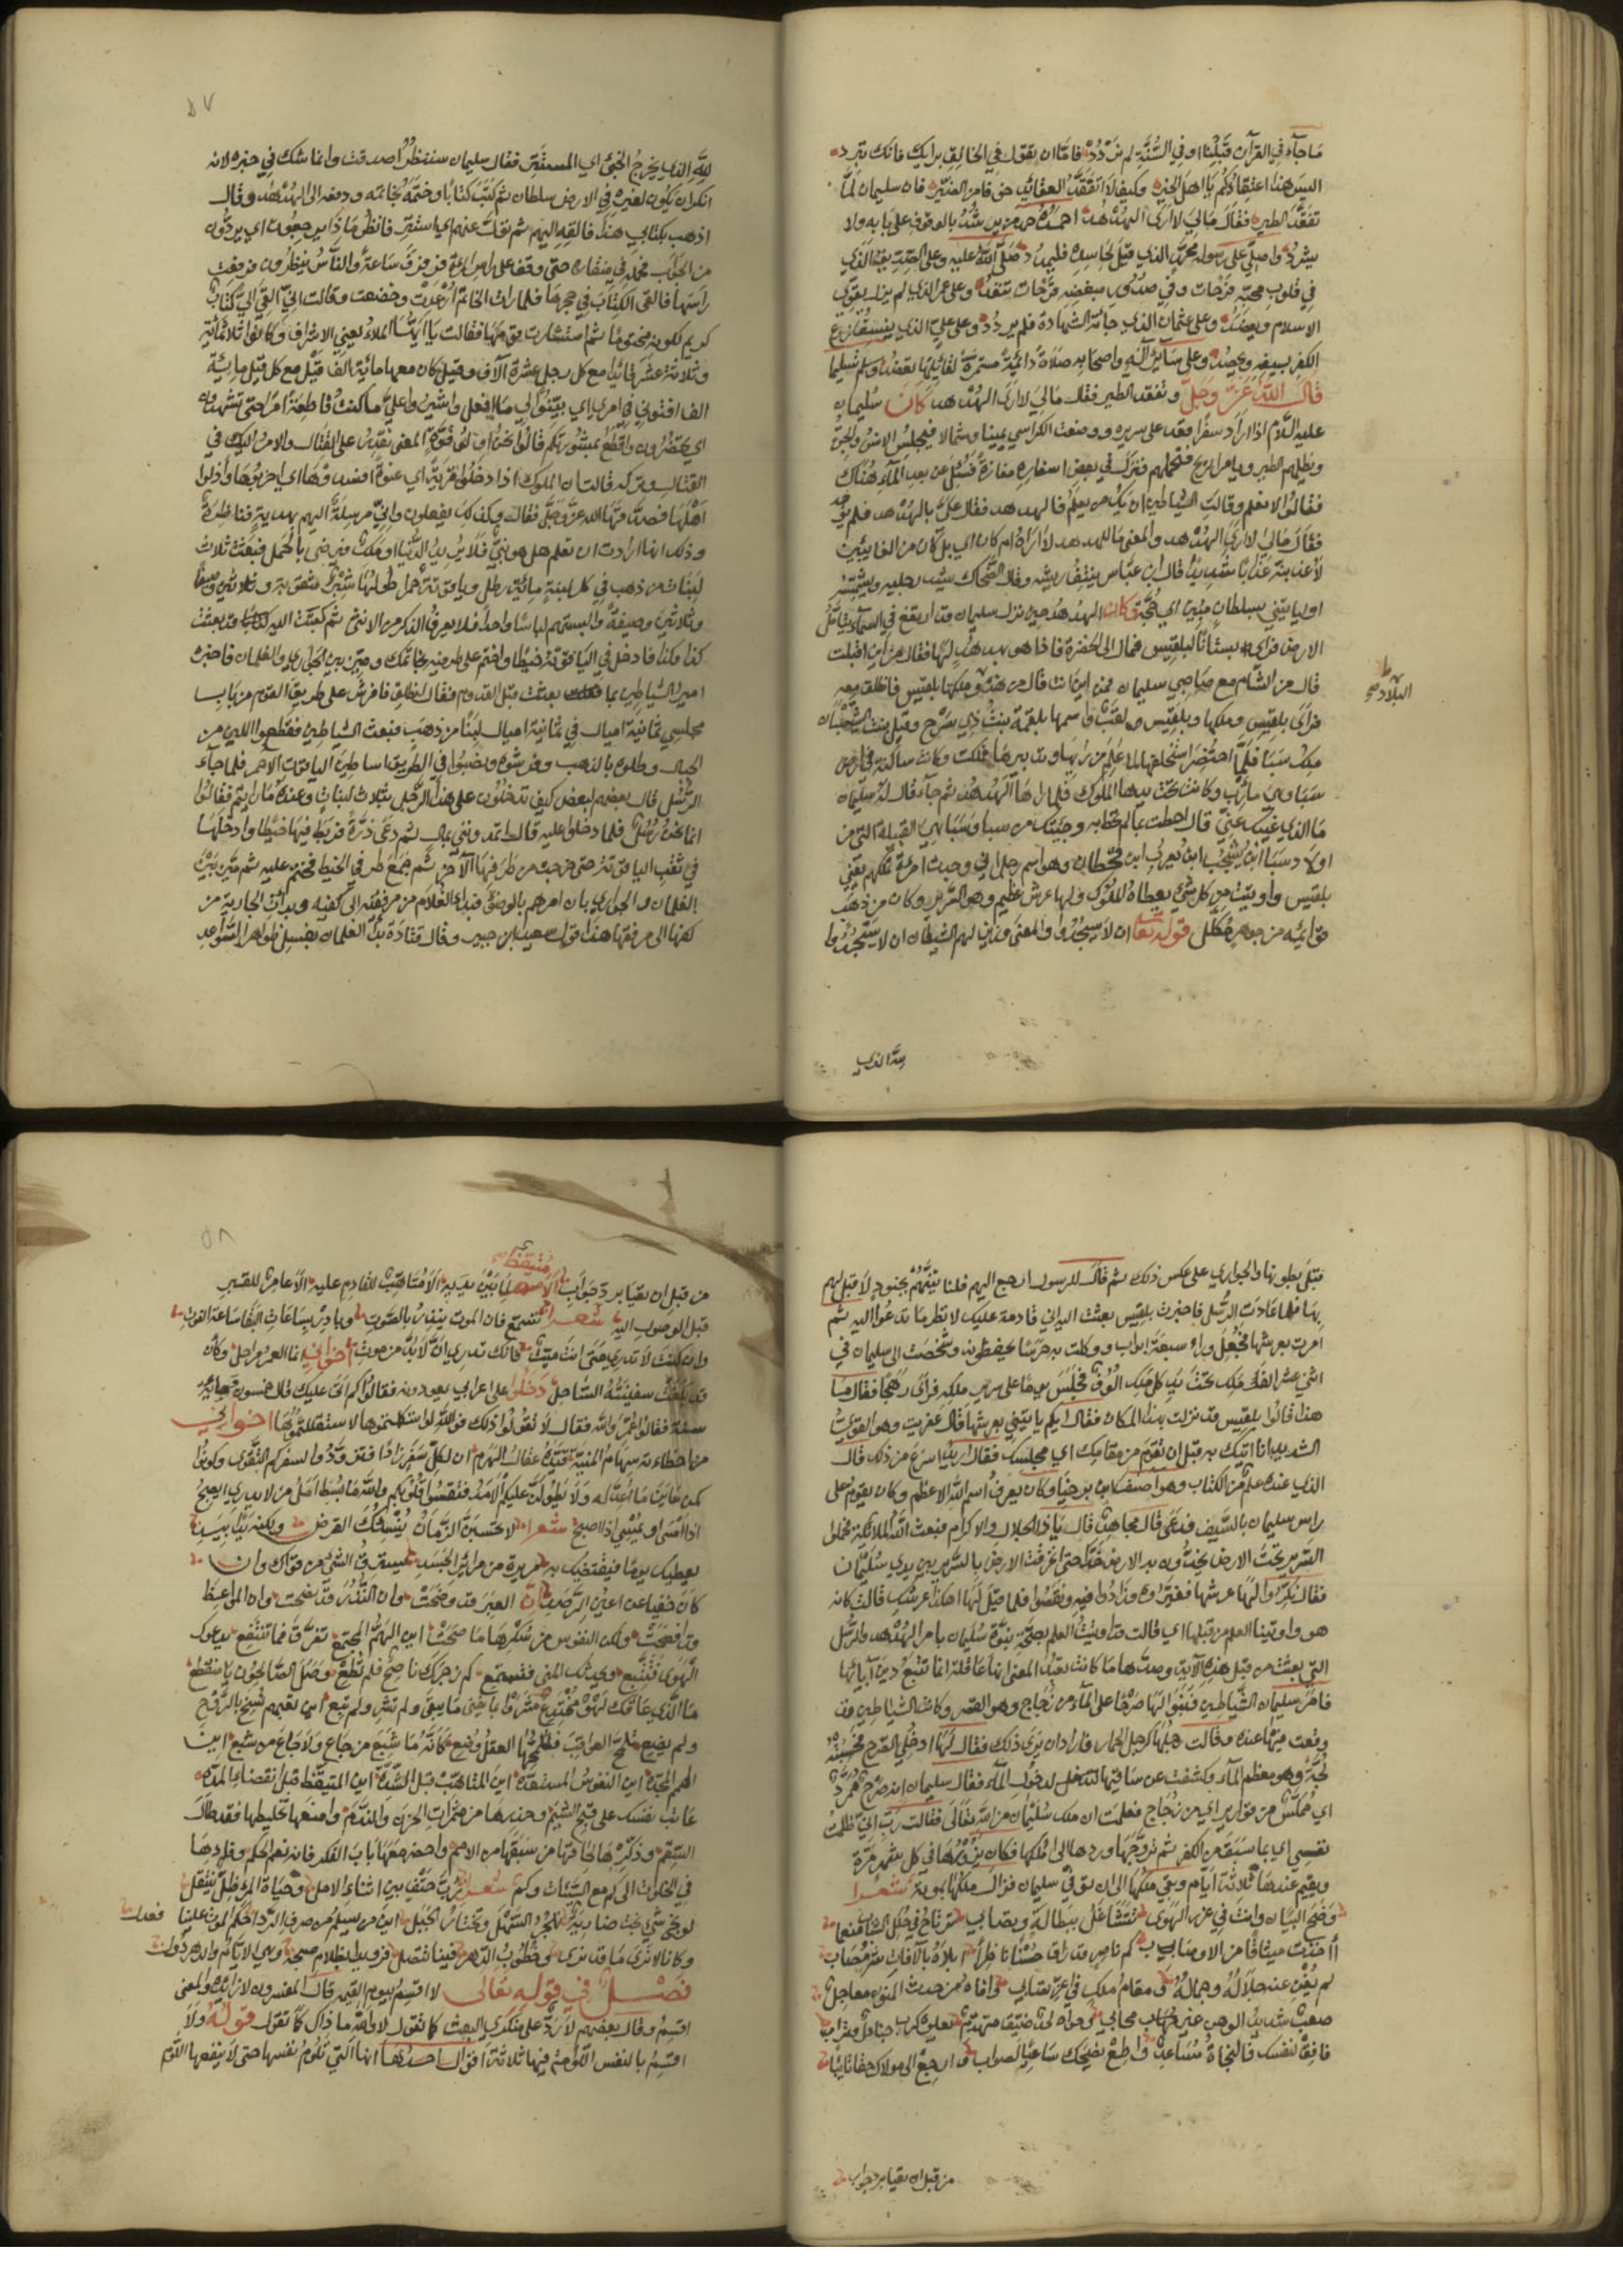 ما جآء في القرآن قبلنا او في السُّنَّة لم نردد فامّا ان يقول في الخالق برايك فانك تبرد
اليس هذا اعتقادكم يا اهل الخير وكيف لا اتفقد العقائد خوفا من الضير فان سليمان لمّا
تفقّد الطير فقال مالي لا ارى الهدهد احمده حمد من يرشد بالوقوف على بابه ولا
يشرد واصلي على رسوله محمد الذي قيل لحاسده فليمدد صلى الله عليه وعلى الصديق الذي
في قلوب محبّيه فرحات وفي صدور مبغضيه قرحات تنفد وعلى عمر الذي لم يزل يقوي
الاسلام ويعضد وعلى عثمان الذي جاءته الشهادة فلم يردد وعلى علي الذي ينسف زرع
الكفر بسيفه ويحصد وعلى سآئر آله واصحابه صلاة دائمة مستمرة لقائلها تعضد وسلم تسليما
قال الله عزّ وجلّ وتفقد الطير فقال مالي لا ارى الهدهد كان سليمان
عليه السلام اذا اراد سفرا قعد على سريره ووضعت الكراسي يمينا وشمالا فيجلس الانس والجن
وتظلهم الطير ويامر الريح فتحملهم فنزل في بعض اسفاره مفازة فسئل عن بعد المآء هناك
فقالوا لا نعلم وقالت الشياطين ان يك من يعلم فالهدهد فقال عليّ بالهدهد فلم يوجد
فقال مالي لا ارى الهدهد والمعنى ما للهدهد لا اراه ام كان اي بل كان من الغائبين
لأعذبنه عذابا شديدا قال ابن عباس ينتف ريشه وقال الضحاك يشد رجليه ويشمسه
او ليأتيني بسلطان مبين اي حجة وكان الهدهد حين نزل سليمان قد ارتفع في السمآء يتأمل
الارض فراى بستانا لبلقيس فمال الى الخضرة فاذا هو بهدهد لها فقال من اين اقبلت
قال من الشام مع صاحبي سليمان فمن اين انت قال من هذه وملكها بلقيس فانطلق معه
البلاد صح
فراى بلقيس وملكها وبلقيس لقب واسمها بلقمة بنت ذي سرح وقيل بنت الشيصبان
ملك سبا فلما احتضر استخلفها لما علم من رايها وتدبيرها فملكت وكانت ساكنة في ارض
سبا وهي مارب وكانت تحت يدها الملوك فلما راها الهدهد ثم جآء قال له سليمان
ما الذي غيبك عني قال احطت بما لم تحط به وجئتك من سبا وسبا هي القبيلة التي من
اولاد سبا ابن يشجب ابن يعرب ابن قحطان وهو اسم رجل اني وجدت امرأة تملكهم يعني
بلقيس واوتيت من كل شيء يعطاه الملوك ولها عرش عظيم وهو السرير وكان من ذهب
قوائمه من جوهر مكلل قوله تعالى ان لا يسجدوا والمعنى وزين لهم الشيطان ان لا يسجدوا
لله الذي
٥٧
لله الذي يخرج الخبء اي المستتر فقال سليمان سننظر اصدقت وانما شك في خبره لانه
انكر ان يكون لغيره في الارض سلطان ثم كتب كتابا وختمه بخاتمه ودفعه الى الهدهد وقال
اذهب بكتابي هذا فالقه اليهم ثم تول عنهم اي استتر فانظر ماذا يرجعون اي يردون
من الجواب فحمله في منقاره حتى وقف على راس المرأة فرفرف ساعة والناس ينظرون فرفعت
راسها فالقى الكتاب في حجرها فلما رات الخاتم ارعدت وخضعت وقالت اني القي الي كتاب
كريم لكونه مختوما ثم استشارت قومها فقالت يا ايها الملاء يعني الاشراف وكانوا ثلاثمائة
وثلاثة عشر قائدا مع كل رجل عشرة آلاف وقيل كان معها مائة الف قيل مع كل قيل مائة
الف افتوني في امري اي بينوا لي ما افعل واشيروا علي ما كنت قاطعة امرا حتى تشهدون
اي تحضرون واقطع بمشورتكم قالوا نحن اولو قوة المعنى نقدر على القتال والامر اليك في
القتال وتركه قالت ان الملوك اذا دخلوا قرية اي عنوة افسدوها اي اخربوها واذلوا
اهلها فصدقها الله عز وجل فقال وكذلك يفعلون واني مرسلة اليهم بهدية فناظرة
وذلك انها ارادت ان تعلم هل هو نبي فلا يريد الدنيا او ملك فيرضى بالحمل فبعثت ثلاث
لبنات من ذهب في كل لبنة مائة رطل وياقوتة حمرا طولها شبر مثقوبة وثلاثين وصيفا
وثلاثين وصيفة والبستهم لباسا واحدا فلا يعرف الذكر من الانثى ثم كتبت اليه قد بعثت
كذا وكذا فادخل في الياقوتة خيطا واختم على طرفيه بخاتمك وميز بين الجواري والغلمان فاخبره
امير الشياطين بما بعثت قبل القدوم فقال انطلق فافرش على طريق القوم من باب
مجلسي ثمانية اميال في ثمانية اميال لبنا من ذهب فبعث الشياطين فقطعوا اللبن من
الجبال وطلوه بالذهب وفرشوه ونصبوا في الطريق اساطين الياقوت الاحمر فلما جآء
الرسل قال بعضهم لبعض كيف تدخلون على هذا الرجل بثلاث لبنات وعنده ما رايتم فقالوا
انما نحن رسل فلما دخلوا عليه قال اتمدونني بمال ثم دعى ذرة فربط فيها خيطا وادخلها
في ثقب الياقوتة حتى خرجت من طرفها الآخر ثم جمع طرفي الخيط فختم عليه ثم ميز بين
الغلمان والجواري بان امرهم بالوضوء فبدا الغلام من مرفقه الى كفيه وبدات الجارية من
كفها الى مرفقها هذا قول سعيد ابن جبير وقال قتادة بدا الغلمان بغسل ظواهر السواعد
قبل بطونها والجواري على عكس ذلك ثم قال للرسول ارجع اليهم فلناتينهم بجنود لا قبل لهم
بها فلما عادت الرسل فاخبرت بلقيس بعثت اليه اني قادمة عليك لانظر ما تدعوا اليه ثم
امرت بعرشها فجعل وراء سبعة ابواب ووكلت به حرسا يحفظونه وشخصت الى سليمان في
اثني عشر الف ملك تحت يد كل ملك الوف فجلس يوما على سرير ملكه فراى رهجا فقال ما
هذا قالوا بلقيس قد نزلت بهذا المكان فقال ايكم ياتيني بعرشها قال عفريت وهو القوي
الشديد انا اتيك به قبل ان تقوم من مقامك اي مجلسك فقال اريد اسرع من ذلك قال
الذي عنده علم من الكتاب وهو اصف ابن برخيا وكان يعرف اسم الله الاعظم وكان يقوم على
راس سليمان بالسيف فدعى قال مجاهد قال يا ذا الجلال والاكرام فبعث الله الملائكة فحملوا
السرير تحت الارض يخدون به الارض خدا حتى انخرقت الارض بالسرير بين يدي سليمان
فقال نكروا لها عرشها فغيروه وزادوا فيه ونقصوا فلما قيل لها اهكذا عرشك قالت كانه
هو واوتينا العلم من قبلها اي قالت قد اوتيت العلم بصحة نبوة سليمان بامر الهدهد والرسل
التي بعثت من قبل هذه الآية وصدها ما كانت تعبد المعنى انها عاقلة انما تتبع دين آبائها
فامر سليمان الشياطين فبنوا لها صرحا على المآء من زجاج وهو القصر وكانت الشياطين قد
وقعت فيها عنده وقالت رجلها كرجل الحمار فاراد ان يرى ذلك فقال لها ادخلي الصرح فحسبته
لجة وهو معظم المآء وكشفت عن ساقيها لتدخل لدخول المآء فقال سليمان انه صرح ممرد
اي مملس من قوارير اي من زجاج فعلمت ان ملك سليمان من الله تعالى فقالت رب اني ظلمت
نفسي اي بما سبق من الكفر ثم تزوجها وردها الى ملكها فكان يزورها في كل شهر مرة
ويقيم عندها ثلاثة ايام وبقي ملكها الى ان توفي سليمان فزال ملكها بموته شعرا
وضح البيان وانت في غرر الهوى متشاغل ببطالة وتصابي ترتاح في حلل الشباب منعما
أأخذت ميثاقا من الاوصاب كم ناضر قد راق حسنا ناظرا ابلاه بالآفات عظم مصاب
لم يغن عنه جلاله وجماله ومقام ملك في اعز نصاب وافاه من حدث المنون معاجل
صعب شديد الوهن غير محابي وحواه لحد ضيق متهدم تعلوه كرب جنادل وتراب
فافق لنفسك فالنجاة مساعد واطع نصيحك ساعيا لصواب وارجع الى مولاك حقا تائبا
من قبل ان تعيا برد جواب
٥٨
من قبل ان تعيا برد جواب الا متيقظ لما بين يديه الا متاهب للقادم عليه الا عامر للقبر
قبل الوصول اليه شعرا تسمع فان الموت ينذر بالصوت وبادر بساعات البقا ساعة الفوت
وان كنت لا تدري متى انت ميت فانك تدري ان لا بد من موت اخواني انما العمر مراحل وكان
قد بلغت سفينته الساحل دخلوا على اعرابي يعودونه فقالوا كم اتى عليك قال خمسون ومائة
سنة فقالوا عمر والله فقال لا تقولوا ذلك فوالله لو استكملتموها لاستقللتموها اخواني
من اخطاءته سهام المنية قيده عقال الهرم ان لكل سفر زادا فتزودوا لسفركم التقوى وكونوا
كمن عاين ما اعد له ولا يطولن عليكم الامد فتقسوا قلوبكم والله ما بسط امل من لا يدري ايصبح
اذا امسى او يمسي اذا اصبح شعرا لا تحسبن الزمان ينسئك القرض ولكنه يدا بيد
يعطيك يوما فيقتضيك به مريرة من مرائر الجسد يسترق الشيء من قواك وان
كان خفيا عن اعين الرصد ان العبر قد وضحت وان النذر قد نصحت وان المواعظ
قد افصحت ولكن النفوس من سكرها ما صحت اين الهم المجتمع تفرق فما تنتفع يدعوك
الهوى فتتبع ويحدثك المنى فتستمع كم زجرك ناصح فلم تطع وصل الصالحون يا منقطع
ما الذي عاقك لهو مختدع شروا ما يفنى بما يبقى ولم تشر ولم تبع اين تعبهم نسخ بالروح
ولم يضع تلمح العواقب فتلمحها للعقل وضع كانه ما شبع من جاع ولا جاع من شبع اين
الهمم المجدة اين النفوس المستعدة اين المتاهب قبل الشدة اين المتيقظ قبل انقضاء المدة
عاتب نفسك على قبح الشيم وحذرها من مثمرات الحزن والندم وامنعها تخليطها فقد طال
السقم وذكرها لحاقها من سبقها من الامم واحضر معها باب الفكر فانه نعم الحكم وقل لها
في الخلوت الى كم مع السيئات وكم شعر رب حتف بين اثناء الامل وحياة المرء ظل ينتقل
لو نجى شيء نجت ضاربة تهجر السهل وتختار الجبل اين من يسلم من صرف الردا حكم الموت علينا فعدل
وكانا لا نرى ما قد نرى وخطوب الدهر فينا تنتضل فرويدا بظلام صبحه وهي الايام والدهر دول
فصل في قوله تعالى لا اقسم بيوم القيمة قال المفسرون لا زائدة والمعنى
اقسم وقال بعضهم لا رد على منكري البعث كما تقول لا والله ما ذاك كما تقول قوله ولا
اقسم بالنفس اللوامة فيها ثلاثة اقوال احدها انها التي تلوم نفسها حتى لا ينفعها اللوم